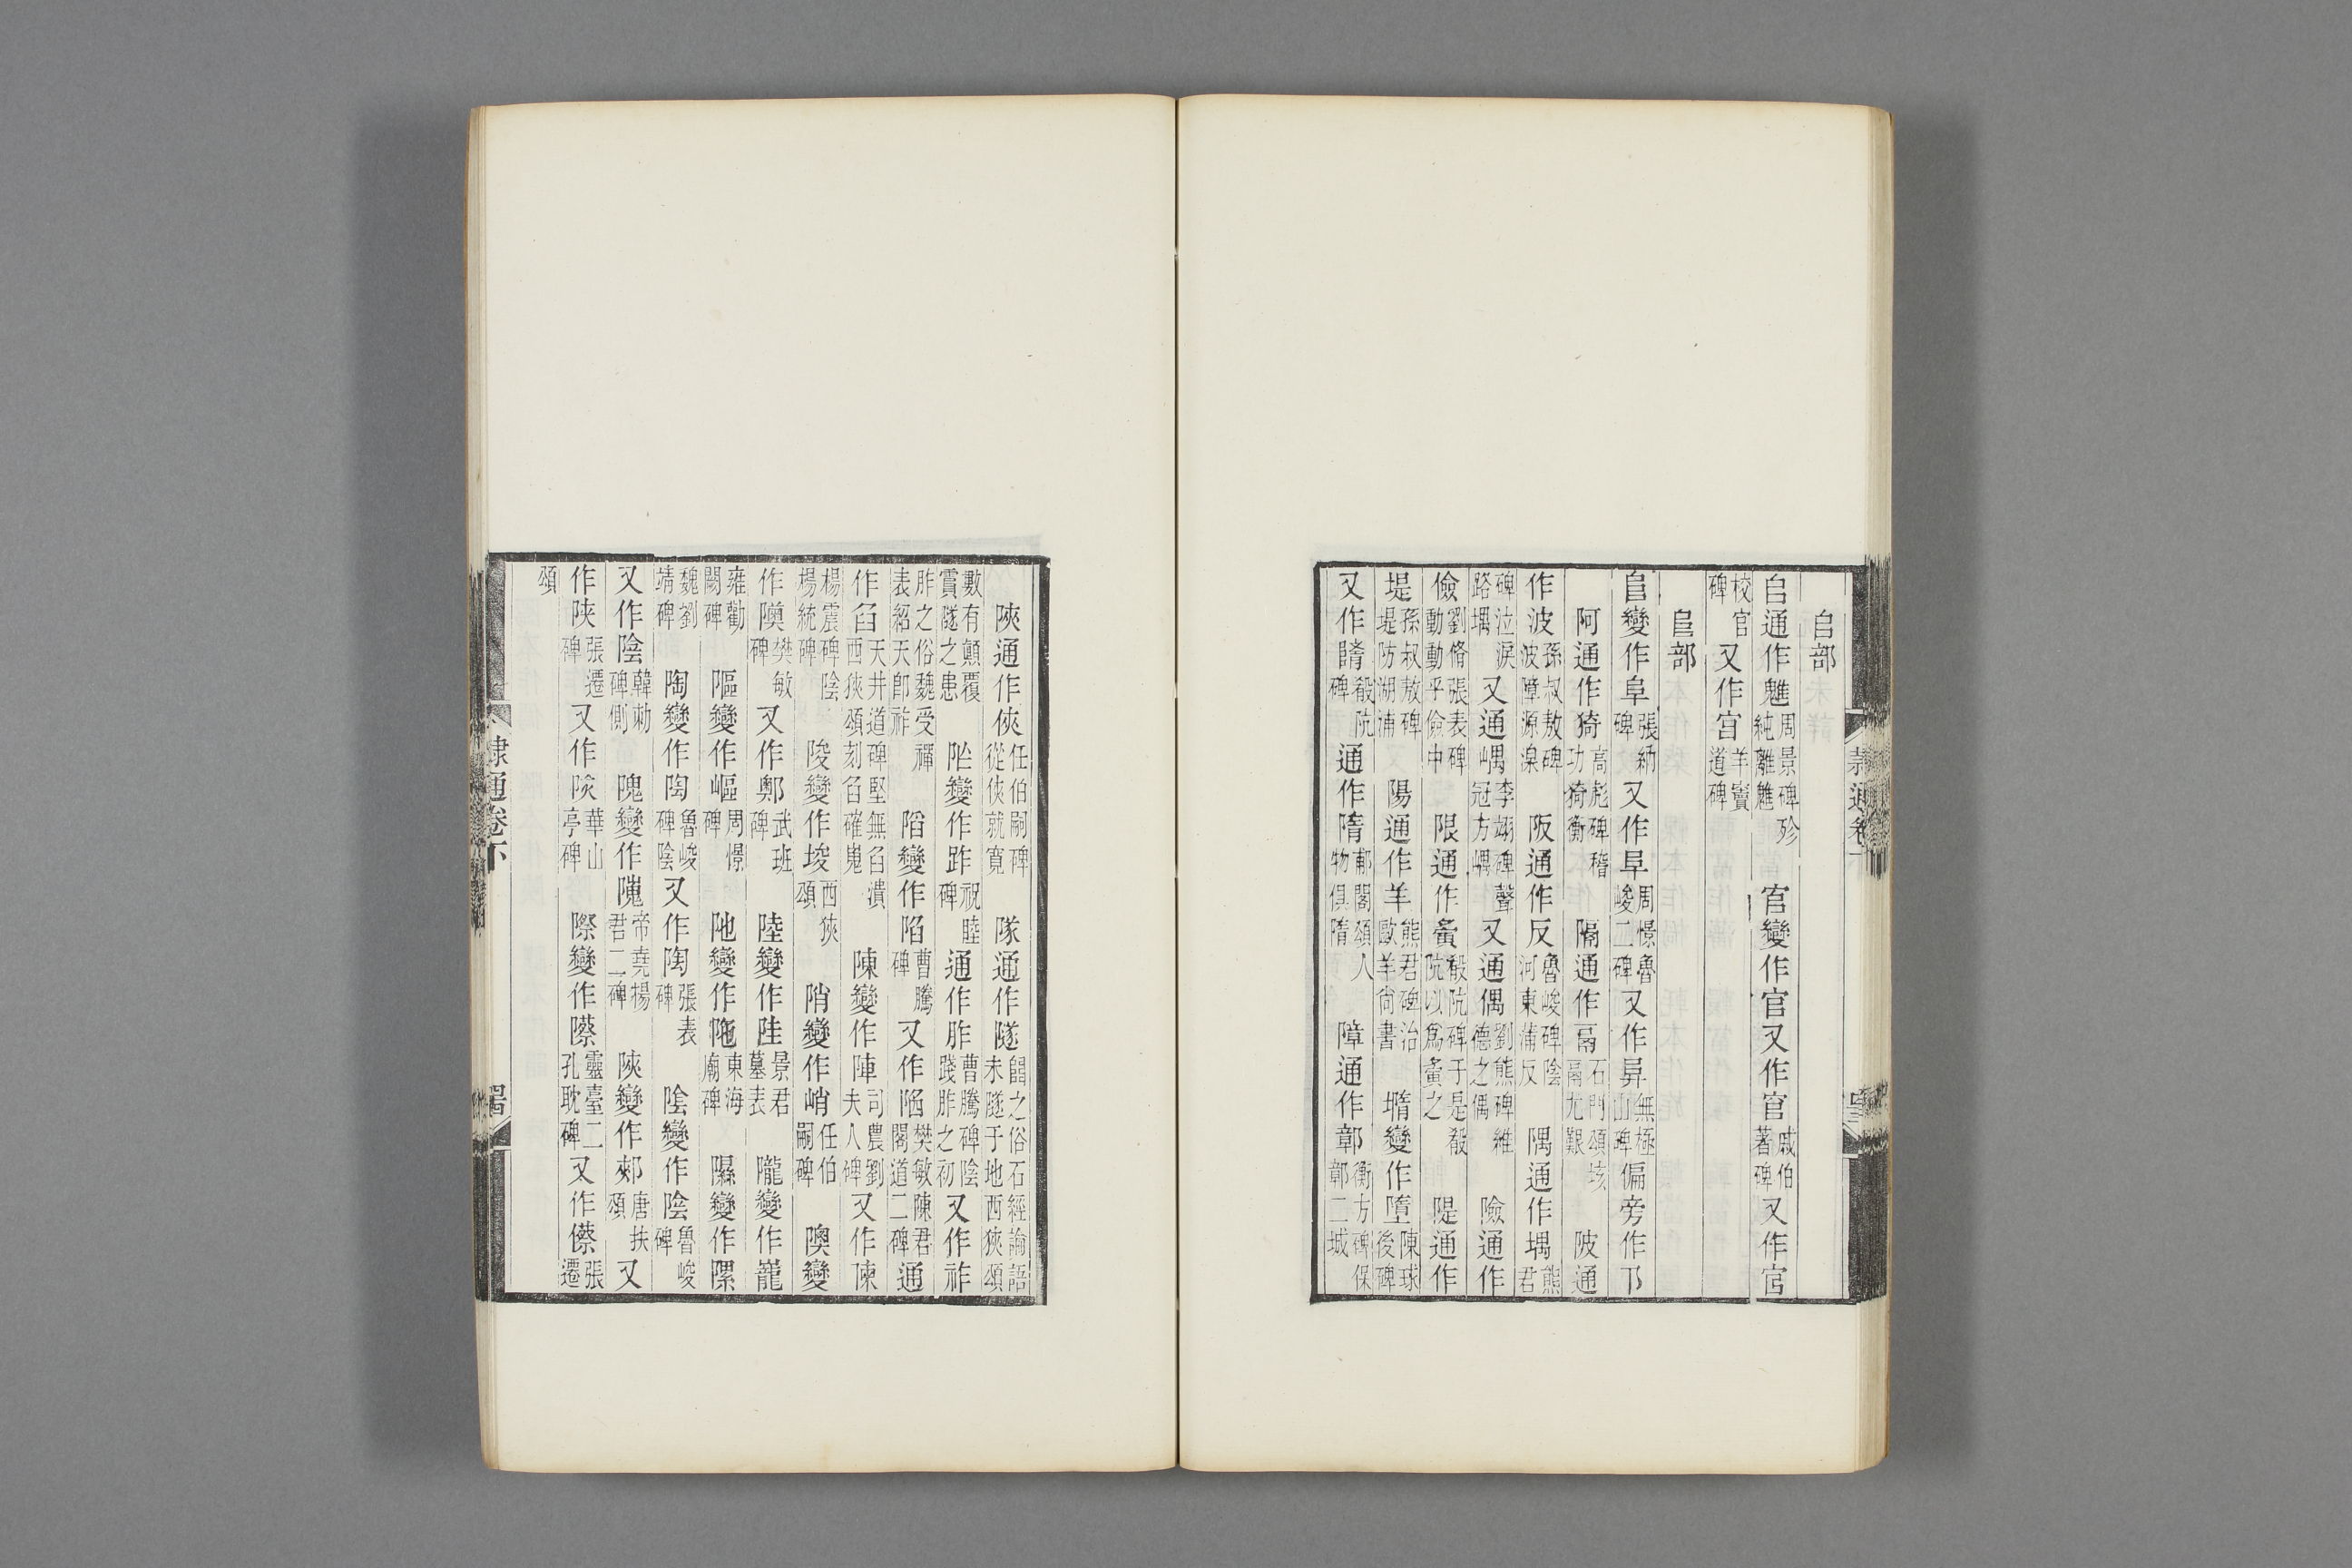 𠂤部
𠂤通作魋周景碑殄純離魋 官變作官又作官戚伯著碑又作官
校官碑 又作宫羊竇道碑
𨸏部
𨸏變作阜張納碑又作㠯周憬魯峻二碑又作㠯無極山碑偏旁作阝
阿通作猗高彪碑稽功猗衡 隔通作鬲石門頌垓鬲尤艱 陂通
作波孫叔敖碑波障源湶 阪通作反魯峻碑陰河東蒲反 隅通作堣熊君
碑泣涙路堣 又通嵎李翊碑聲冠方嵎又通偶劉熊碑維德之偶 險通作
儉劉脩張表碑動動乎儉中 限通作夤殽阮碑于是殽阮以爲夤之 隄通作
堤孫叔敖碑堤防湖浦 陽通作羊熊君碑治歐羊尚書 墮變作墮陳球後碑
又作隋殽阮碑 通作隋郙閣頌人物俱隋 障通作鄣衡方碑保鄣二城
陜通作俠任伯嗣碑從俠就寬 隊通作隧餾之俗石經論語未隧于地西狹頌
數有顛覆霣隧之患 阼變作跓祝睦碑 通作胙曹騰碑陰踐胙之初又作祚
胙之俗魏受禪表紹天卽祚 陷變作陷曹騰碑又作陷樊敏陳君閣道二碑通
作臽天井道碑堅無臽潰西狹頌刻臽確嵬 陳變作陣司農劉夫人碑又作陳
楊震碑陰楊統碑 陵變作埈西狹頌 陗變作峭任伯嗣碑 隩變
作隩樊敏碑又作鄭武班碑 陸變作陸景君墓表 隴變作蘢
雍勸闕碑 隁變作嶇周憬碑 阤變作陁東海廟碑 隰變作隰
魏劉靖碑 陶變作陶魯峻碑陰又作陶張表碑 陰變作陰魯峻碑
又作陰韓勑碑側 隗變作隗帝堯楊君二碑 陝變作郟唐扶頌又
作陜張遷碑又作陝華山亭碑 際變作隙靈臺二孔耽碑又作傺張遷
頌
隸通卷下